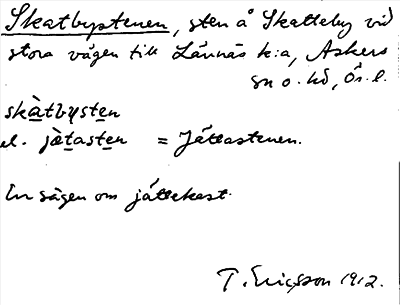 Skatbystenen, sten å Skatteby vid
stora vägen till Lännäs k:a, Askers
sn o. hd, Ör. l.
skàtbysten
el. jètasten = Jättastenen.
En sägen om jättekast.
T. Ericsson 1912.